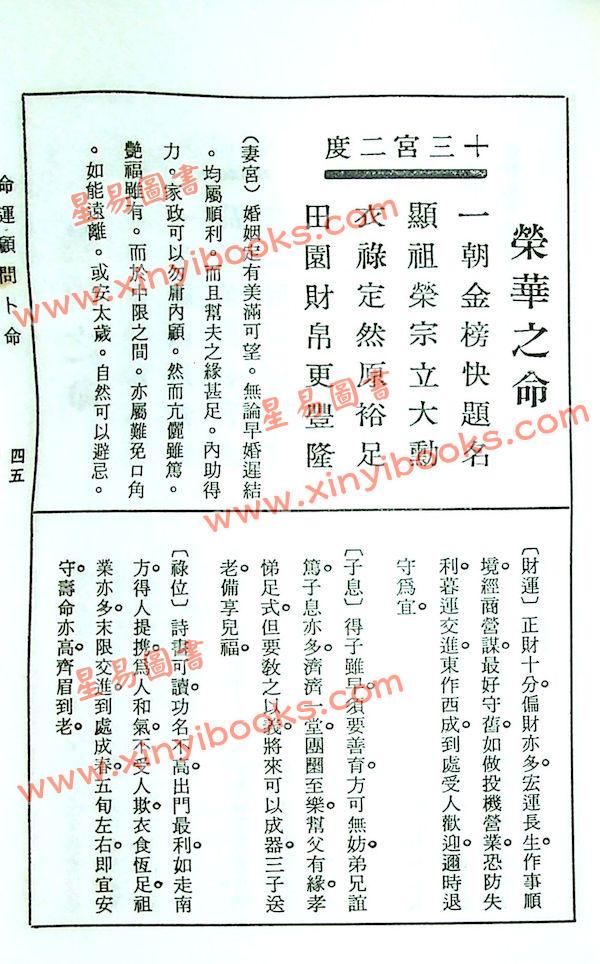 榮華之命
十三宮二度
一朝金榜快題名
顯祖榮宗立大勳
衣祿定然原裕足
田園財帛更豐隆
(妻宮)婚姻定有美滿可望。無論早婚遲結
。均屬順利。而且幫夫之緣甚足。內助得
力。家政可以勿庸內顧。然而亢儷雖篤。
艷福雖有。而於中限之間。亦屬難免口角
。如能遠離。或安太歲。自然可以避忌。
〔財運〕正財十分偏財亦多宏運長生作事順
境。經商營謀最好守舊如做投機營業恐防失
利暮運交進東作西成到處受人歡迎邇時退
守爲宜。
〔子息〕得子雖早須要善育方可無妨弟兄誼
篤子息亦多濟濟一堂團圞至樂幫父有緣孝
悌足式但要教之以義將來可以成器三子送
老備享兒福。
〔祿位〕詩書可讀功名不高出門最利如走南
方得人提携爲人和氣不受人欺衣食恆足祖
業亦多末限交進到處成春五旬左右即宜安
守壽命亦高齊眉到老。
命運顧問卜命
四五
星易圖書
www.xinyibooks.com
星易圖書
www.xinyibooks.com
星易圖書
www.xinyibooks.com